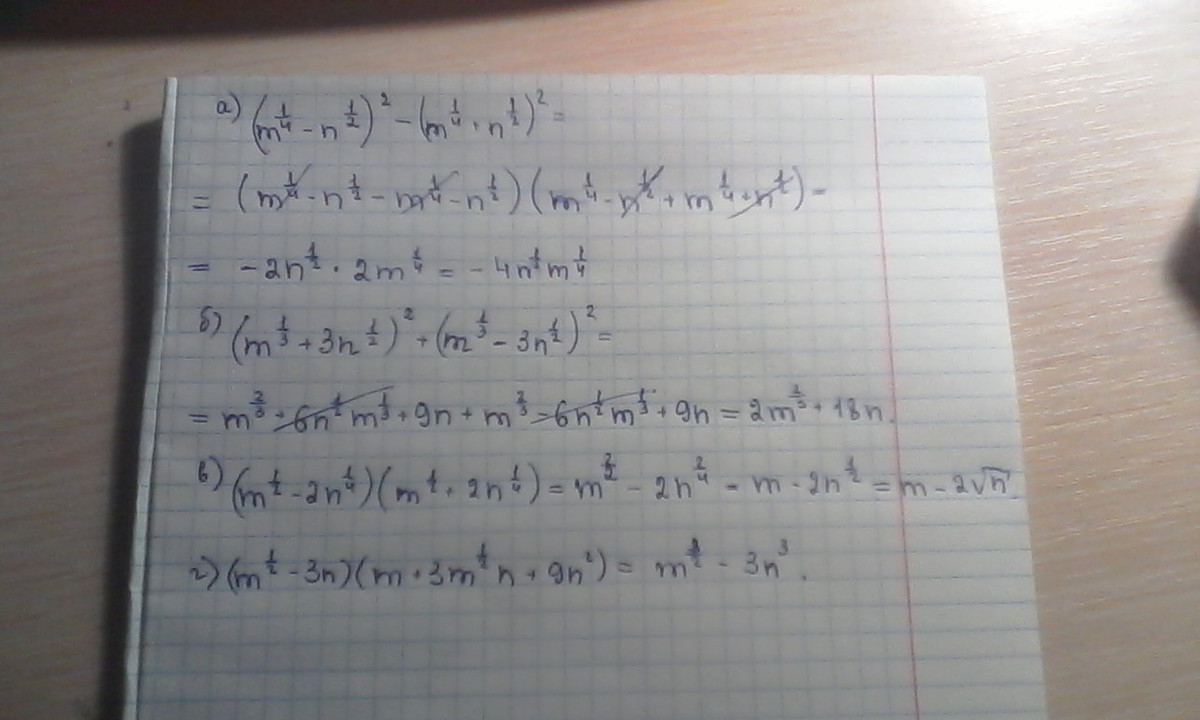 а) (m^{1/4} - n^{1/2})^2 - (m^{1/4} + n^{1/2})^2 =
= (m^{1/4} - n^{1/2} - m^{1/4} - n^{1/2}) (m^{1/4} - n^{1/2} + m^{1/4} + n^{1/2}) =
= -2n^{1/2} · 2m^{1/4} = -4n^{1/2}m^{1/4}
б) (m^{1/3} + 3n^{1/2})^2 + (m^{1/3} - 3n^{1/2})^2 =
= m^{2/3} + 6n^{1/2}m^{1/3} + 9n + m^{2/3} - 6n^{1/2}m^{1/3} + 9n = 2m^{2/3} + 18n.
в) (m^{1/2} - 2n^{1/4})(m^{1/2} + 2n^{1/4}) = m^{2/2} - 2n^{2/4} = m - 2n^{1/2} = m - 2√n
г) (m^{1/2} - 3n)(m + 3m^{1/2}n + 9n^2) = m - 3n^3.